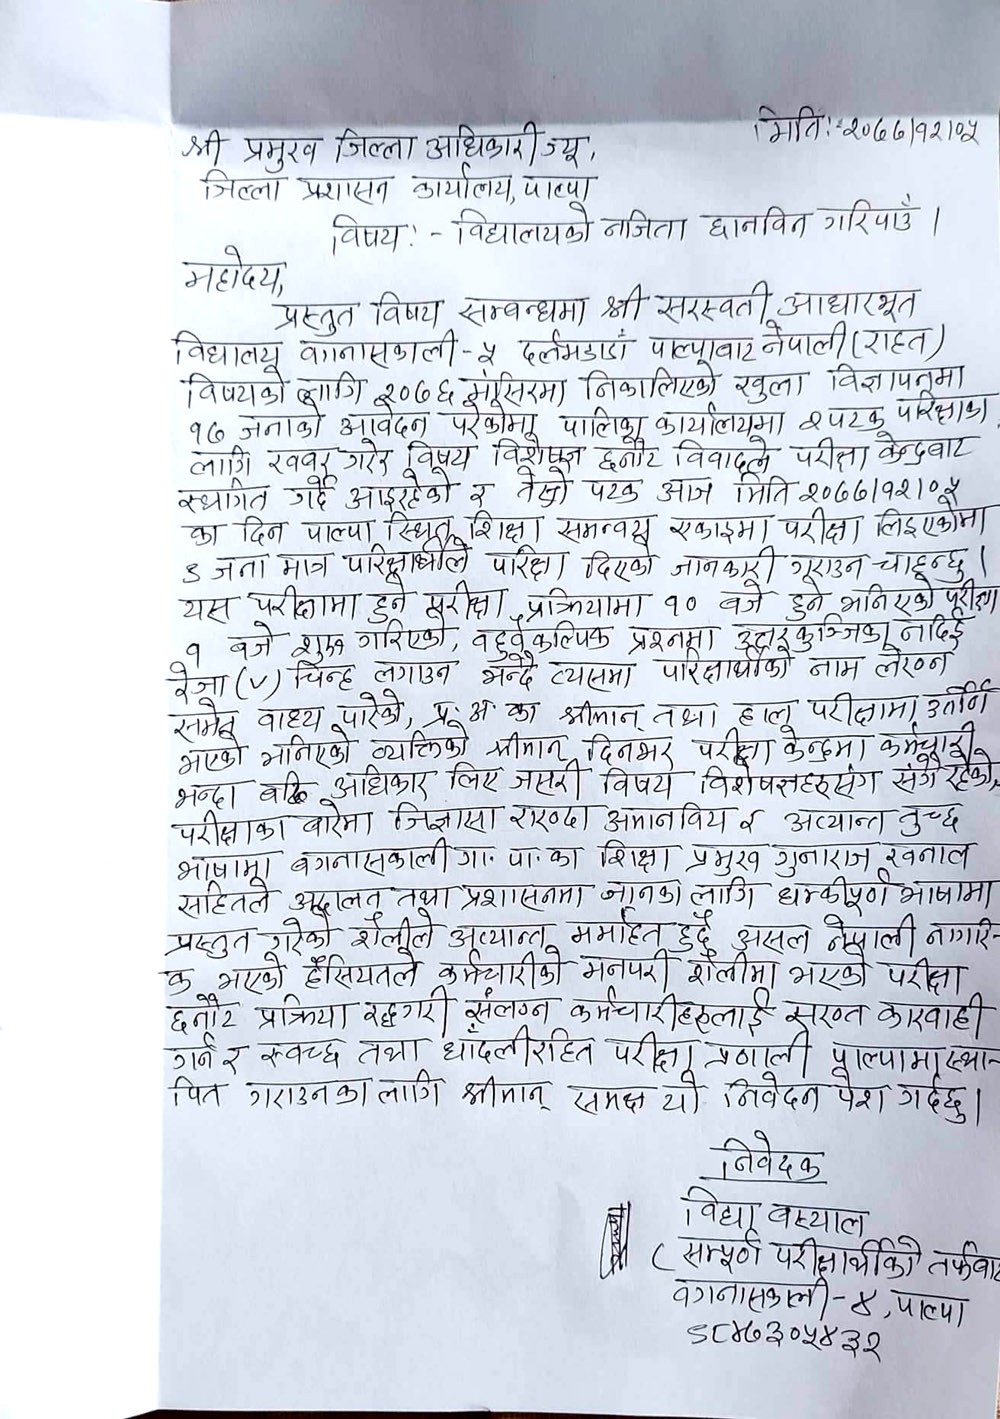 मिति:-२०७७/१२/०५
श्री प्रमुख जिल्ला अधिकारी ज्यू,
जिल्ला प्रशासन कार्यालय, पाल्पा
विषय:- विद्यालयको नजिता छानविन गरिपाउँ ।
महोदय,
प्रस्तुत विषय सम्वन्धमा श्री सरस्वती आधारभूत
विद्यालय वगनासकाली-५ दर्लमडाडाँ पाल्पाबाट नेपाली (राहत)
विषयको लागि २०७६ मंसिरमा निकालिएको खुला विज्ञापनमा
१७ जनाको आवेदन परेकोमा पालिका कार्यालयमा २ पटक परिक्षाका
लागि खवर गरेर विषय विशेषज्ञ छनौट विवादले परीक्षा केन्द्रबाट
स्थगित गर्दै आइरहेको र तेस्रो पटक आज मिति २०७७/१२/०५
का दिन पाल्पा स्थित शिक्षा समन्वय एकाइमा परीक्षा लिइएकोमा
९ जना मात्र परिक्षार्थीले परिक्षा दिएको जानकारी गराउन चाहन्छु ।
यस परीक्षामा हुने परीक्षा प्रक्रियामा १० बजे हुने भनिएको परीक्षा
१ बजे शुरू गरिएको, वहुवैकल्पिक प्रश्नमा उत्तरकुञ्जिका नदिई
रेजा (√) चिन्ह लगाउन भन्दै त्यसमा परिक्षार्थीको नाम लेख्न
समेत वाध्य पारेको, प्र. अ का श्रीमान् तथा हाल परीक्षामा उर्तीर्ण
भएको भनिएको व्यक्तिको श्रीमान् दिनभर परीक्षा केन्द्रमा कर्मचारी
भन्दा बढि अधिकार लिए जसरी विषय विशेषज्ञहरुसंग संगै रहेको,
परीक्षाका बारेमा जिज्ञासा राख्दा अमानविय र अत्यान्त तुच्छ
भाषामा बगनासकाली गा. पा. का शिक्षा प्रमुख गुनाराज खनाल
सहितले अदालत तथा प्रशासनमा जानका लागि धम्कीपूर्ण भाषामा
प्रस्तुत गरेको शैलीले अत्यान्त मर्माहत हुदैँ असल नेपाली नागरि-
क भएको हैसियतले कर्मचारीको मनपरी शैलीमा भएको परीक्षा
छनौट प्रक्रिया रद्दगरी संलग्न कर्मचारीहरुलाई सख्त कारवाही
गर्न र स्वच्छ तथा धाँदलीरहित परीक्षा प्रणाली पाल्पामा स्था-
पित गराउनका लागि श्रीमान् समक्ष यो निवेदन पेश गर्दछु ।
निवेदक
विद्या वस्याल
( सम्पूर्ण परीक्षार्थीको तर्फवाट
वगनासकाली-४, पाल्पा
९८४७३०५४३२